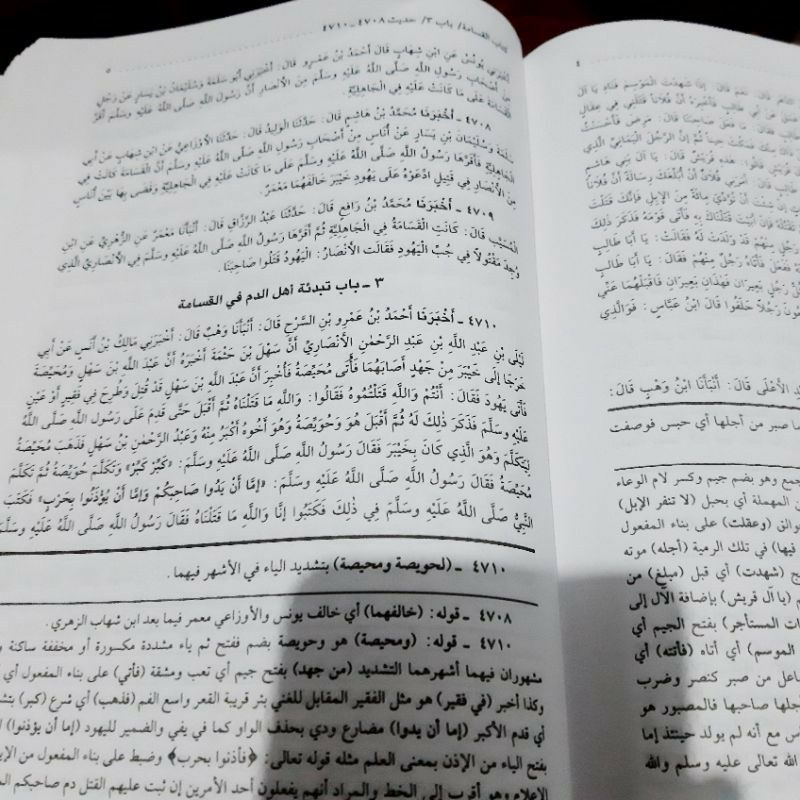 كتاب القسامة/ باب ٣/ حديث ٤٧٠٨ - ٤٧١٠
٥
أَخْبَرَنِي يُونُسُ عَنِ ابْنِ شِهَابٍ قَالَ أَحْمَدُ بْنُ عَمْرٍو قَالَ: أَخْبَرَنِي أَبُو سَلَمَةَ وَسُلَيْمَانُ بْنُ يَسَارٍ عَنْ رَجُلٍ
مِنْ أَصْحَابِ رَسُولِ اللَّهِ صَلَّى اللَّهُ عَلَيْهِ وَسَلَّمَ مِنَ الأَنْصَارِ أَنَّ رَسُولَ اللَّهِ صَلَّى اللَّهُ عَلَيْهِ وَسَلَّمَ أَقَرَّ
الْقَسَامَةَ عَلَى مَا كَانَتْ عَلَيْهِ فِي الْجَاهِلِيَّةِ.
٤٧٠٨ - أَخْبَرَنَا مُحَمَّدُ بْنُ هَاشِمٍ قَالَ: حَدَّثَنَا الْوَلِيدُ قَالَ: حَدَّثَنَا الأَوْزَاعِيُّ عَنِ ابْنِ شِهَابٍ عَنْ أَبِي
سَلَمَةَ وَسُلَيْمَانَ بْنِ يَسَارٍ عَنْ أُنَاسٍ مِنْ أَصْحَابِ رَسُولِ اللَّهِ صَلَّى اللَّهُ عَلَيْهِ وَسَلَّمَ أَنَّ الْقَسَامَةَ كَانَتْ فِي
الْجَاهِلِيَّةِ فَأَقَرَّهَا رَسُولُ اللَّهِ صَلَّى اللَّهُ عَلَيْهِ وَسَلَّمَ عَلَى مَا كَانَتْ عَلَيْهِ فِي الْجَاهِلِيَّةِ وَقَضَى بِهَا بَيْنَ أُنَاسٍ
مِنَ الأَنْصَارِ فِي قَتِيلٍ ادَّعَوْهُ عَلَى يَهُودِ خَيْبَرَ خَالَفَهُمَا مَعْمَرٌ.
٤٧٠٩ - أَخْبَرَنَا مُحَمَّدُ بْنُ رَافِعٍ قَالَ: حَدَّثَنَا عَبْدُ الرَّزَّاقِ قَالَ: أَنْبَأَنَا مَعْمَرٌ عَنِ الزُّهْرِيِّ عَنِ ابْنِ
الْمُسَيَّبِ قَالَ: كَانَتِ الْقَسَامَةُ فِي الْجَاهِلِيَّةِ ثُمَّ أَقَرَّهَا رَسُولُ اللَّهِ صَلَّى اللَّهُ عَلَيْهِ وَسَلَّمَ فِي الأَنْصَارِيِّ الَّذِي
وُجِدَ مَقْتُولاً فِي جُبِّ الْيَهُودِ فَقَالَتِ الأَنْصَارُ: الْيَهُودُ قَتَلُوا صَاحِبَنَا.
٣ - باب تبدئة أهل الدم في القسامة
٤٧١٠ - أَخْبَرَنَا أَحْمَدُ بْنُ عَمْرِو بْنِ السَّرْحِ قَالَ: أَنْبَأَنَا ابْنُ وَهْبٍ قَالَ: أَخْبَرَنِي مَالِكُ بْنُ أَنَسٍ عَنْ أَبِي
لَيْلَى بْنِ عَبْدِ اللَّهِ بْنِ عَبْدِ الرَّحْمٰنِ الأَنْصَارِيِّ أَنَّ سَهْلَ بْنَ حَثْمَةَ أَخْبَرَهُ أَنَّ عَبْدَ اللَّهِ بْنَ سَهْلٍ وَمُحَيِّصَةَ
خَرَجَا إِلَى خَيْبَرَ مِنْ جَهْدٍ أَصَابَهُمَا فَأَتَى مُحَيِّصَةُ فَأُخْبِرَ أَنَّ عَبْدَ اللَّهِ بْنَ سَهْلٍ قَدْ قُتِلَ وَطُرِحَ فِي فَقِيرٍ أَوْ عَيْنٍ
فَأَتَى يَهُودَ فَقَالَ: أَنْتُمْ وَاللَّهِ قَتَلْتُمُوهُ فَقَالُوا: وَاللَّهِ مَا قَتَلْنَاهُ ثُمَّ أَقْبَلَ حَتَّى قَدِمَ عَلَى رَسُولِ اللَّهِ صَلَّى اللَّهُ
عَلَيْهِ وَسَلَّمَ فَذَكَرَ ذٰلِكَ لَهُ ثُمَّ أَقْبَلَ هُوَ وَحُوَيِّصَةُ وَهُوَ أَخُوهُ أَكْبَرُ مِنْهُ وَعَبْدُ الرَّحْمٰنِ بْنُ سَهْلٍ فَذَهَبَ مُحَيِّصَةُ
لِيَتَكَلَّمَ وَهُوَ الَّذِي كَانَ بِخَيْبَرَ فَقَالَ رَسُولُ اللَّهِ صَلَّى اللَّهُ عَلَيْهِ وَسَلَّمَ: «كَبِّرْ كَبِّرْ» وَتَكَلَّمَ حُوَيِّصَةُ ثُمَّ تَكَلَّمَ
مُحَيِّصَةُ فَقَالَ رَسُولُ اللَّهِ صَلَّى اللَّهُ عَلَيْهِ وَسَلَّمَ: «إِمَّا أَنْ يَدُوا صَاحِبَكُمْ وَإِمَّا أَنْ يُؤْذَنُوا بِحَرْبٍ» فَكَتَبَ
النَّبِيُّ صَلَّى اللَّهُ عَلَيْهِ وَسَلَّمَ فِي ذٰلِكَ فَكَتَبُوا إِنَّا وَاللَّهِ مَا قَتَلْنَاهُ فَقَالَ رَسُولُ اللَّهِ صَلَّى اللَّهُ عَلَيْهِ وَسَلَّمَ
٤٧١٠ - (لحويصة ومحيصة) بتشديد الياء في الأشهر فيهما.
٤٧٠٨ - قوله: (خالفهما) أي خالف يونس والأوزاعي معمر فيما بعد ابن شهاب الزهري.
٤٧١٠ - قوله: (ومحيصة) هو وحويصة بضم ففتح ثم ياء مشددة مكسورة أو مخففة ساكنة و
مشهوران فيهما أشهرهما التشديد (من جهد) بفتح جيم أي تعب ومشقة (فأتي) على بناء المفعول أي
وكذا أخبر (في فقير) هو مثل الفقير المقابل للغني بئر قريبة القعر واسع الفم (فذهب) أي شرع (كبر)
أي قدم الأكبر (إما أن يدوا) مضارع ودي بحذف الواو كما في يفي والضمير لليهود (إما أن يؤذنوا)
بفتح الياء من الإذن بمعنى العلم مثله قوله تعالى: ﴿فأذنوا بحرب﴾ وضبط على بناء المفعول من
الإعلام وهو أقرب إلى الخط والمراد أنهم يفعلون أحد الأمرين إن ثبت عليهم القتل دم صاحبكم
٤
قَالَ: نَعَمْ قَالَ: إِذَا شَهِدْتَ الْمَوْسِمَ فَنَادِ يَا آلَ
أَبِي طَالِبٍ فَأَخْبِرْهُ أَنَّ فُلاَنًا قَتَلَنِي فِي عِقَالٍ
طَالِبٍ فَقَالَ: مَا فَعَلَ صَاحِبُنَا قَالَ: مَرِضَ فَأَحْسَنْتُ
ذَاكَ مِنْكَ فَمَكُثَ حِينًا ثُمَّ إِنَّ الرَّجُلَ الْيَمَانِيَّ الَّذِي
قُرَيْشٍ قَالُوا: هٰذِهِ قُرَيْشٌ قَالَ: يَا آلَ بَنِي هَاشِمٍ
طَالِبٍ قَالَ: أَمَرَنِي فُلاَنٌ أَنْ أُبَلِّغَكَ رِسَالَةً أَنَّ فُلاَنًا
إِنْ شِئْتَ أَنْ تُؤَدِّيَ مِائَةً مِنَ الإِبِلِ فَإِنَّكَ قَتَلْتَ
تَقْتُلْهُ فَإِنْ أَبَيْتَ قَتَلْنَاكَ بِهِ فَأَتَى قَوْمَهُ فَذَكَرَ ذٰلِكَ
رَجُلٍ مِنْهُمْ قَدْ وَلَدَتْ لَهُ فَقَالَتْ: يَا أَبَا طَالِبٍ
فَفَعَلَ فَأَتَاهُ رَجُلٌ مِنْهُمْ فَقَالَ: يَا أَبَا طَالِبٍ
رَجُلٍ بَعِيرَانِ فَهٰذَانِ بَعِيرَانِ فَاقْبَلْهُمَا عَنِّي
رَجُلاً حَلَفُوا قَالَ ابْنُ عَبَّاسٍ: فَوَالَّذِي
الأَعْلَى قَالَ: أَنْبَأَنَا ابْنُ وَهْبٍ قَالَ:
ما صبر من أجلها أي حبس فوصفت
جمع وهو بضم جيم وكسر لام الوعاء
المهملة أي بحبل (لا تنفر الإبل)
(وعقلت) على بناء المفعول
فيها) في تلك الرمية (أجله) موته
(شهدت) أي قبل (مبلغ) من
(يا آل قريش) بإضافة الآل إلى
المستأجر) بفتح الجيم أي
الموسم) أي أتاه (فأتته) أي
من صبر كنصر وضرب
أجلها صاحبها فالمصبور هو
مع أنه لم يولد حينئذ إما
الله تعالى عليه وسلم والله